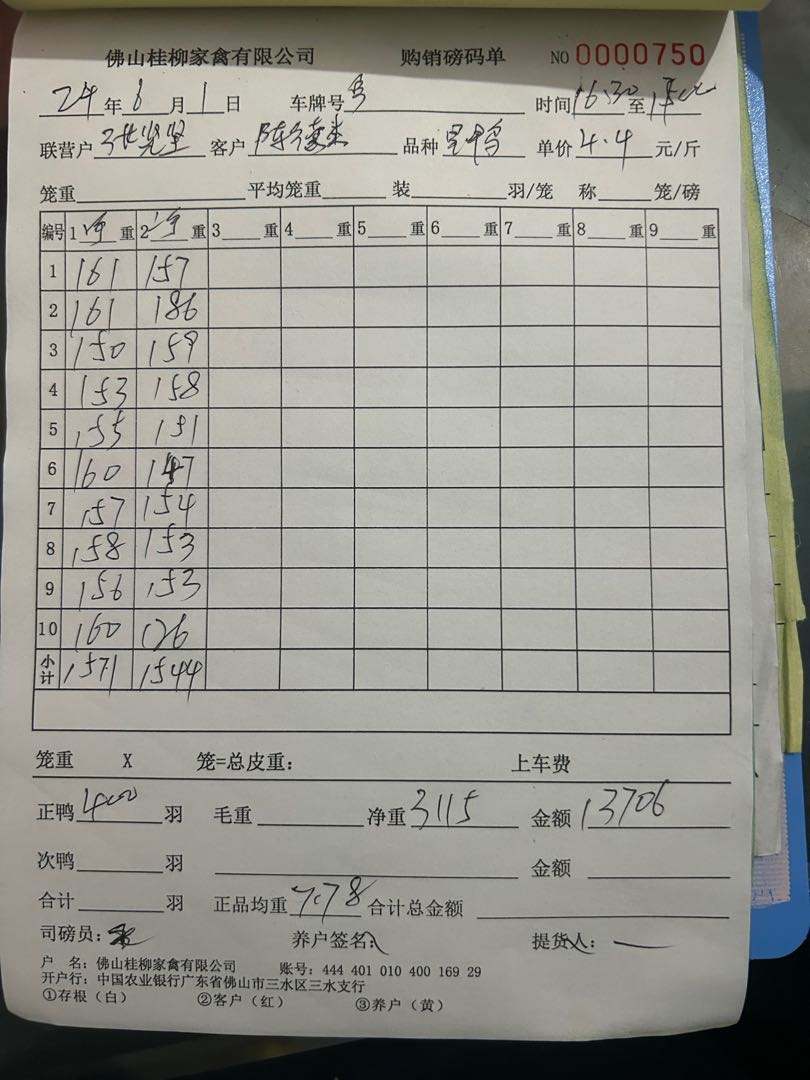 佛山桂柳家禽有限公司 购销磅码单 NO 0000750
24年8月1日 车牌号 时间16:30至
联营户 客户 品种 单价4.4元/斤
笼重 平均笼重 装 羽/笼 称 笼/磅
编号 1净重 2净重 3 重 4 重 5 重 6 重 7 重 8 重 9 重
1 161 157
2 161 186
3 150 159
4 153 158
5 155 151
6 160 147
7 157 154
8 158 153
9 156 153
10 160 126
小计 1571 1544
笼重 X 笼=总皮重: 上车费
正鸭400羽 毛重 净重3115 金额13706
次鸭 羽 金额
合计 羽 正品均重7.78 合计总金额
司磅员: 养户签名: 提货人:
户 名: 佛山桂柳家禽有限公司 账号: 444 401 010 400 169 29
开户行: 中国农业银行广东省佛山市三水区三水支行
①存根(白) ②客户(红) ③养户(黄)